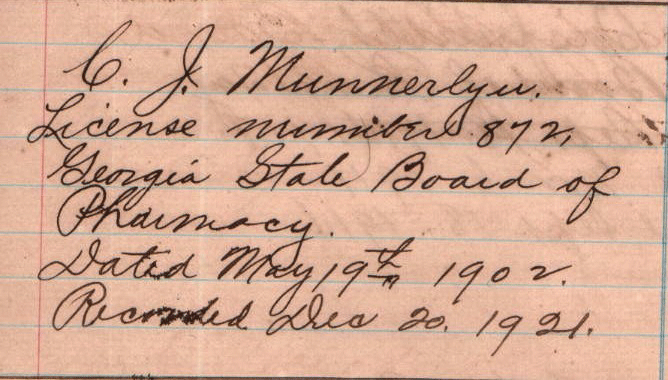 C. J. Munnerlyn.
License number 872,
Georgia State Board of
Pharmacy.
Dated May 19th 1902.
Recorded Dec 20. 1921.